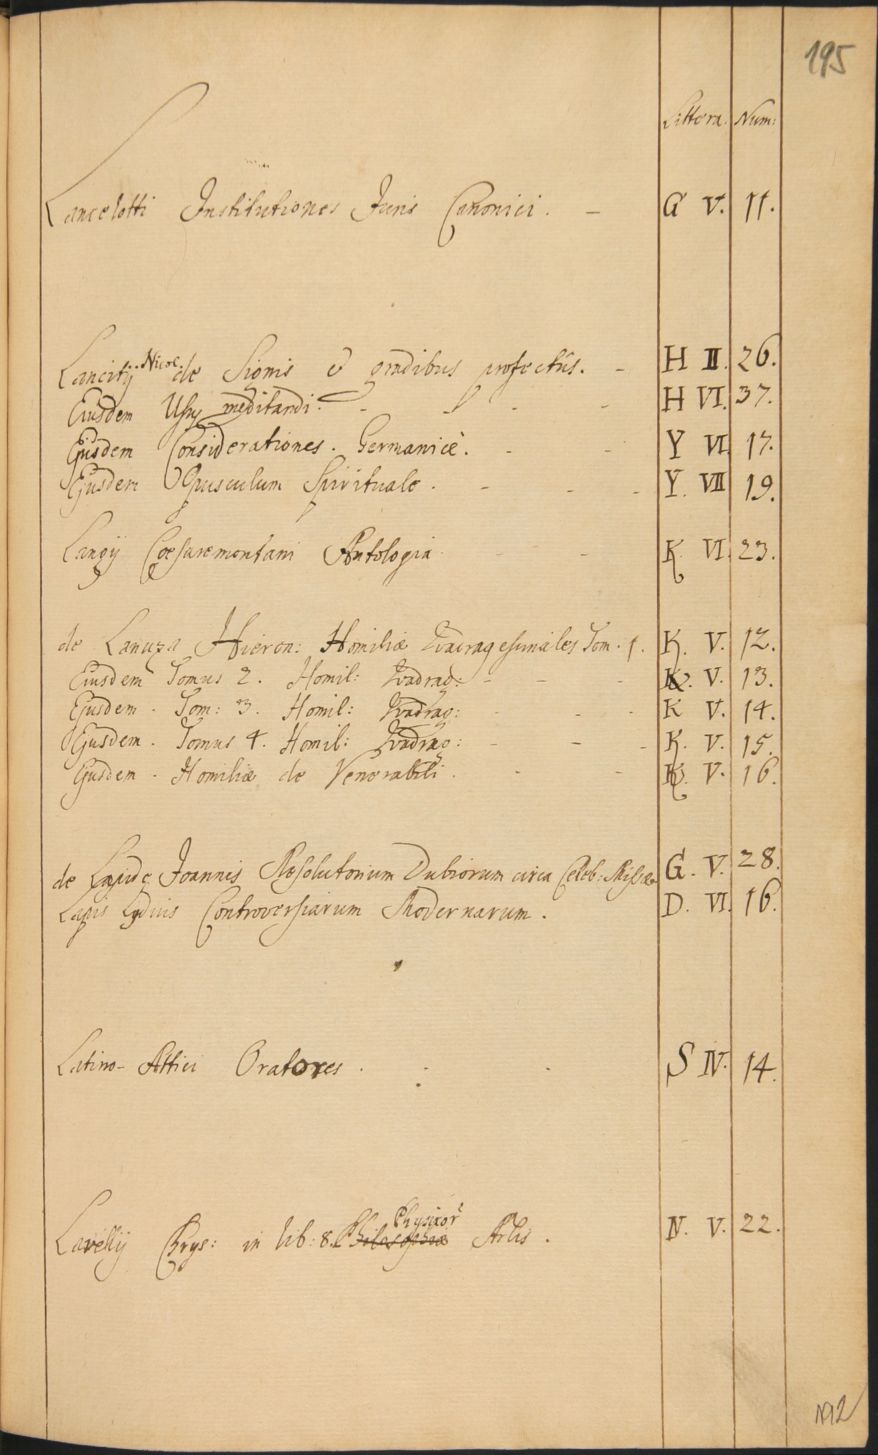 195
Littera. Num:
Lancelotti Institutiones Juris Canonici. – G V. 11.
Lancitij Nicol: de Signis & gradibus profectûs. – H II. 26.
Eiusdem Usus meditandi. - - - H VI. 37.
Ejusdem Considerationes. Germanicè. - - Y VI. 17.
Ejusdem Opusculum Spirituale. - - - Y. VII 19.
Langij Cæsaremontani Antologia - - K VI. 23.
de Lanuza Hieron: Homiliæ Quadragesimales Tom. 1. K. V. 12.
Eiusdem Tomus 2. Homil: Quadrag: - - - K. V. 13.
Ejusdem. Tom: 3. Homil: Quadrag: - - - K V. 14.
Ejusdem. Tomus 4. Homil: Quadrag: - - - K. V. 15.
Ejusdem. Homiliæ de Venerabili. - - K. V. 16.
de Lapide Joannis Resolutorium Dubiorum circa Celeb: Missæ G. V. 28.
Lapis Lydius Controversiarum Modernarum. D. VI. 16.
Latino-Attici Oratores. - - S IV. 14.
Physicor
Lavelly Chrys: in lib: 8. Philosophiæ Artis. N. V. 22.
192